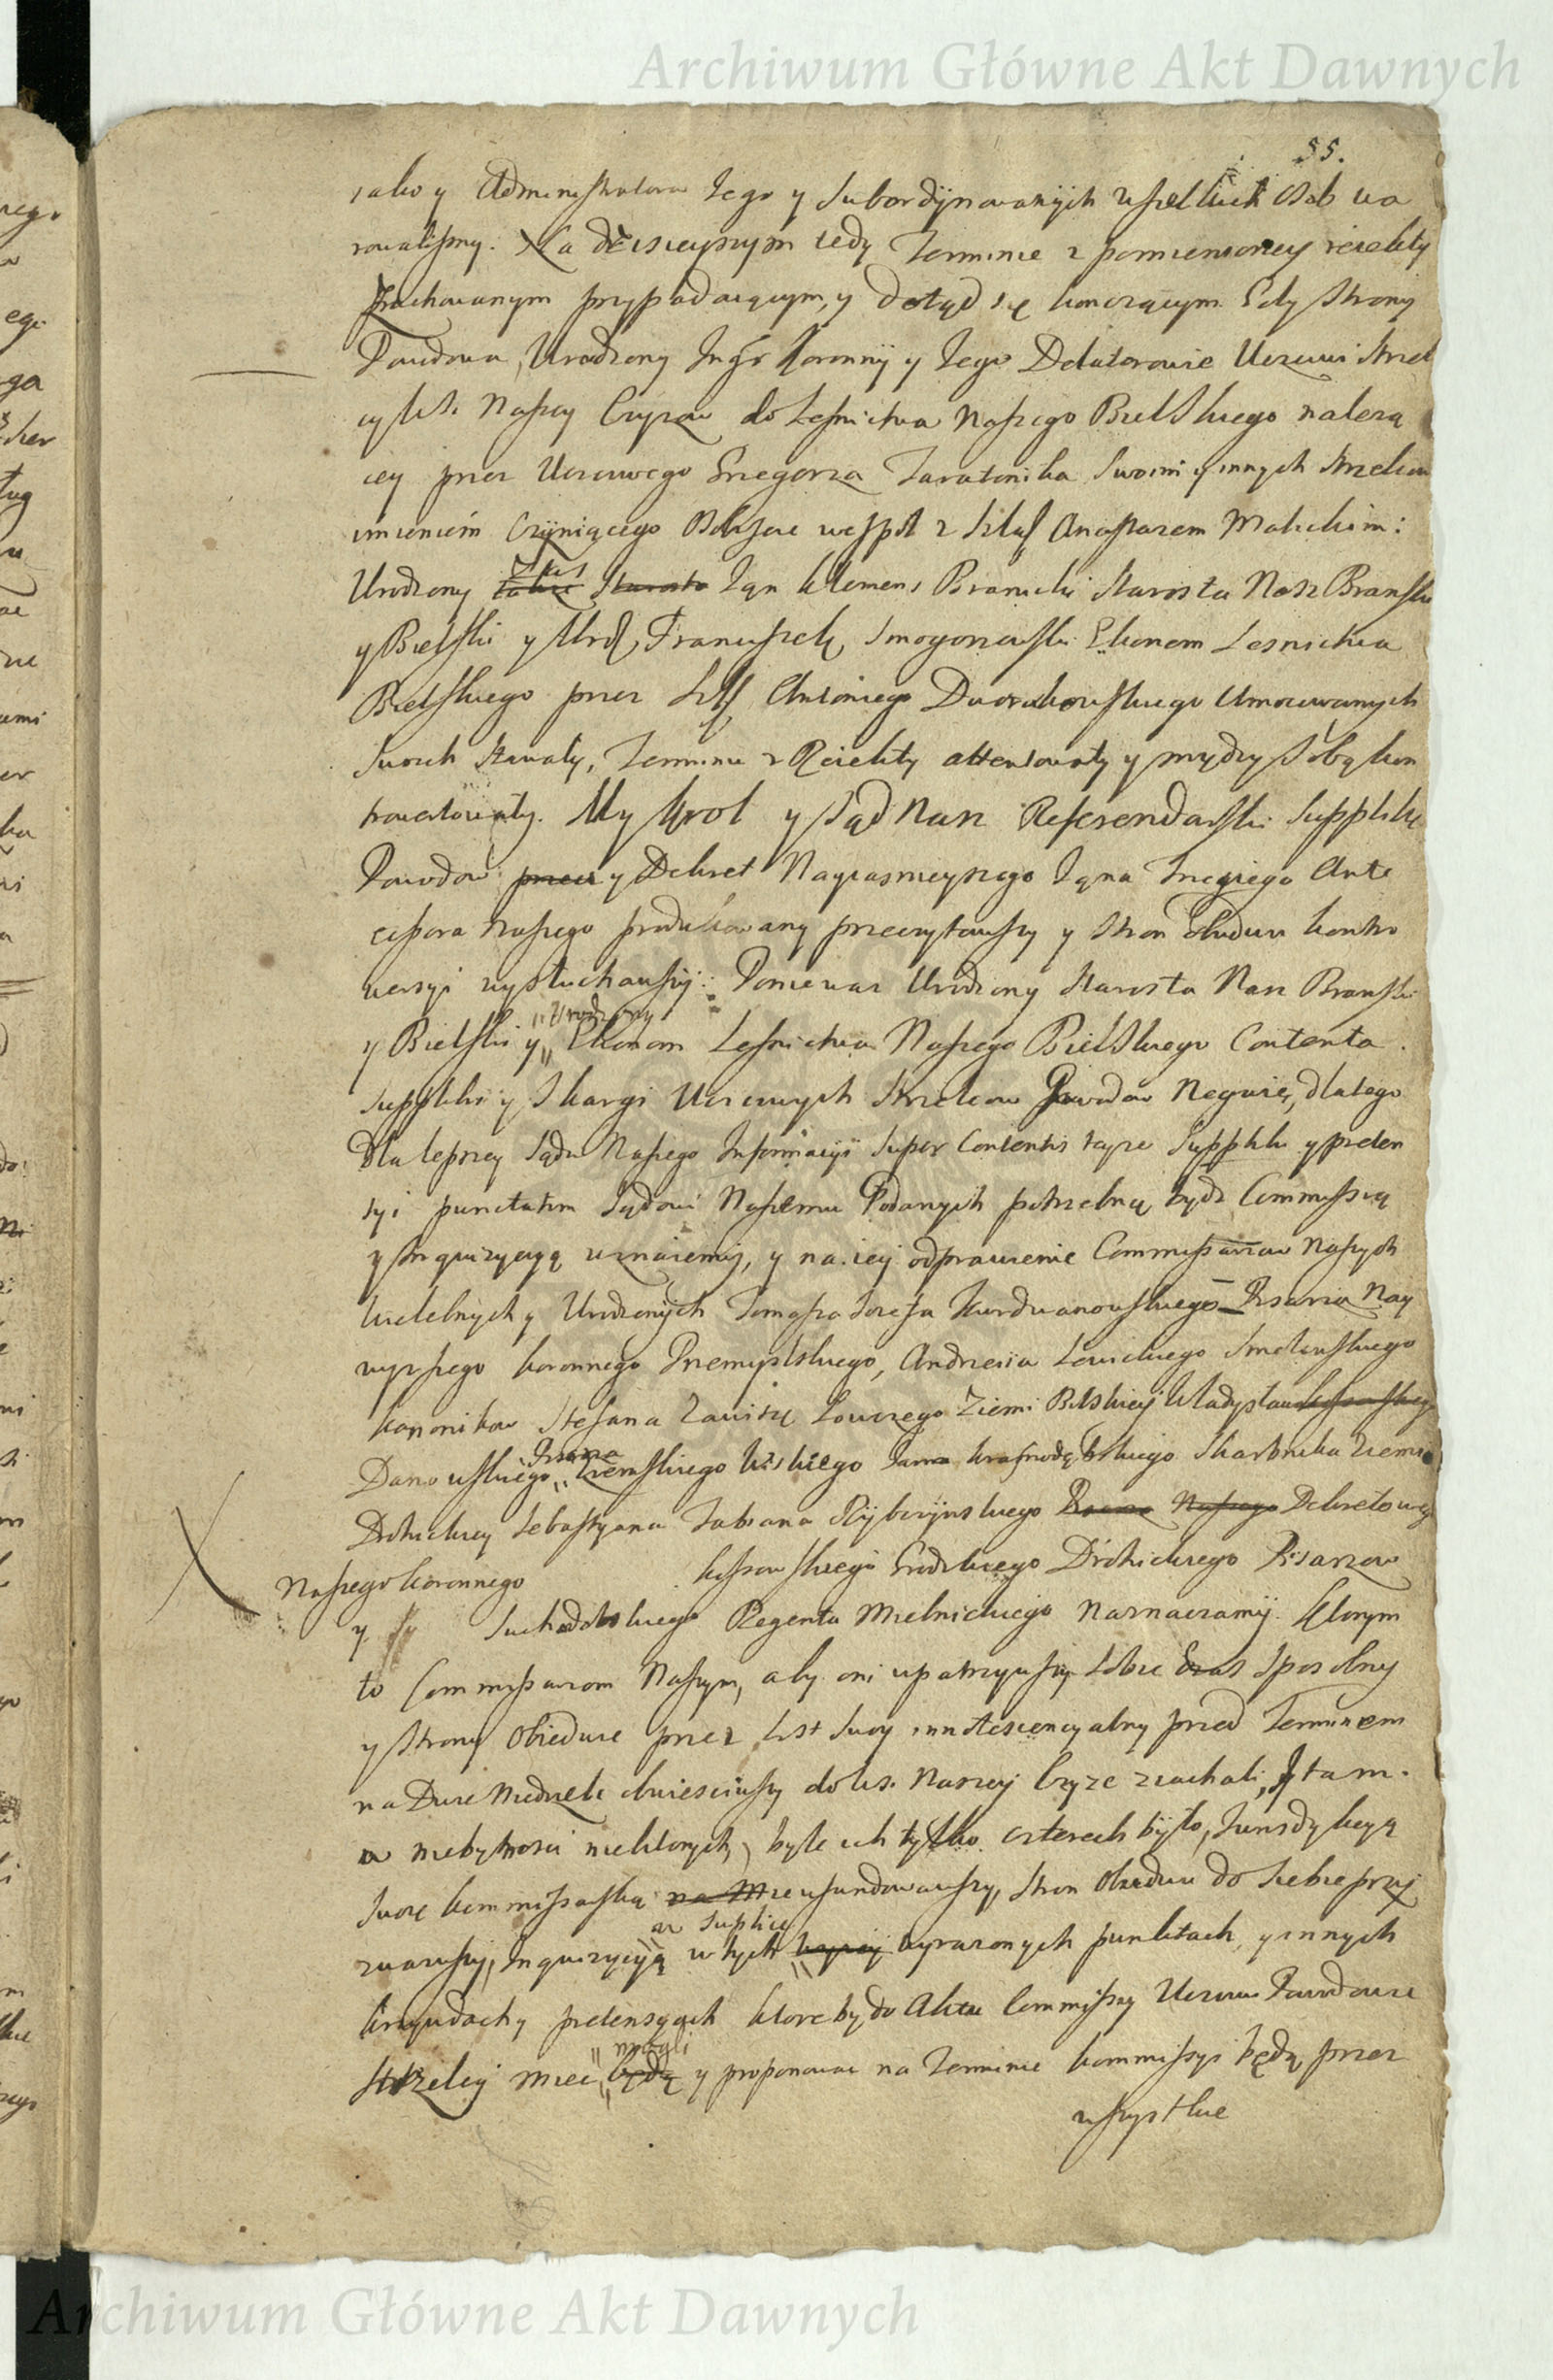 Archiwum Główne Akt Dawnych
55.
iako y Administratora Iego y Subordynowanych wszelkich Osob wa
rowalismy. Na dzisieyszym tedy Terminie z pomienioney reiekty
zachowanym przypadaiącym, y dotąd się konczącym Gdy Strony
Powodowa, Urodzony Instr Koronny y Iego Delatorowie Uczciwi Strzel
cy Wsi Naszey Czyzow do Lesnictwa Naszego Bielskiego nalezą
cey przez Uczciwego Grzegorza Taratonika Swoim y innych Strzelcow
imieniem Czyniącego Oblicznie wespoł z Szlach Anastazem Maleckim:
Urodzony Ian Klemens Branicki Starosta Nasz Branski
y Bielski y Urodz Franciszek Smogorzewski Ekonom Lesnictwa
Bielskiego przez Szl Antoniego Dworakowskiego Umocowanych
Swoich Stawały, Terminu z Reiekty attentowały y między Sobą kon
trowertowały. My Krol y Sąd Nasz Referendarski Supplikę
Powodow y Dekret Nayiasnieyszego Iana Trzeciego Ante
cessora Naszego produkowany przeczytawszy y Stron Obudwu kontro
wersyi wysłuchawszy: Poniewaz Urodzony Starosta Nasz Branski
y Bielski y Urodzony Ekonom Lesnictwa Naszego Bielskiego Contenta
Suppliki y Skargi Uczciwych Strzelcow Powodow Neguie, dlatego
Dla lepszey Sądu Naszego Informacyi Super Contentis teyze Suppliki y preten
syi punctatim Sądowi Naszemu Podanych potrzebną bydz Commissią
y Inquizycyą uznaiemy, y na iey odprawienie Commissarzow Naszych
Wielebnych y Urodzonych Tomasza Iozefa Kurdwanowskiego Pisarza Nay
wyzszego koronnego Przemyslskiego, Andrzeia Lewickiego Smolenskiego
Kanonikow Stefana Zawiszę Łowczego Ziemi Bielskiey Władysława
Danowskiego Pisarza Ziemskiego Wiskiego Iana Krasnodębskiego Skarbnika Ziemi
Drohickiey Sebastyana Fabiana Rybczynskiego Dekretowego
Naszego koronnego Kossowskiego Grodzkiego Drohickiego Pisarzow
y Suchodolskiego Regenta Mielnickiego Naznaczamy. Ktorym
to Commissarzom Naszym, aby oni upatrzywszy Sobie Czas Sposobny
y Strony Obiedwie przez List Swoy innotescencyalny przed Terminem
na Dwie Niedziele obwiesciwszy do Wsi Naszey Czyze ziachali, y tam
w niebytnosci niektorych, byle ich tylko czterech było, Iurisdykcyą
Swoię kommissarską ufundowawszy, Stron Obudwu do Siebie przy
zwawszy, Inquizycyą w tych w Suplice wyrazonych punktach, y innych
krzywdach y pretensyach ktoreby do Aktu Commissyi Uczciwi Powodowie
Strzelcy miec mogli y proponowac na Terminie kommissyi będą przez
wszystkie
Archiwum Główne Akt Dawnych